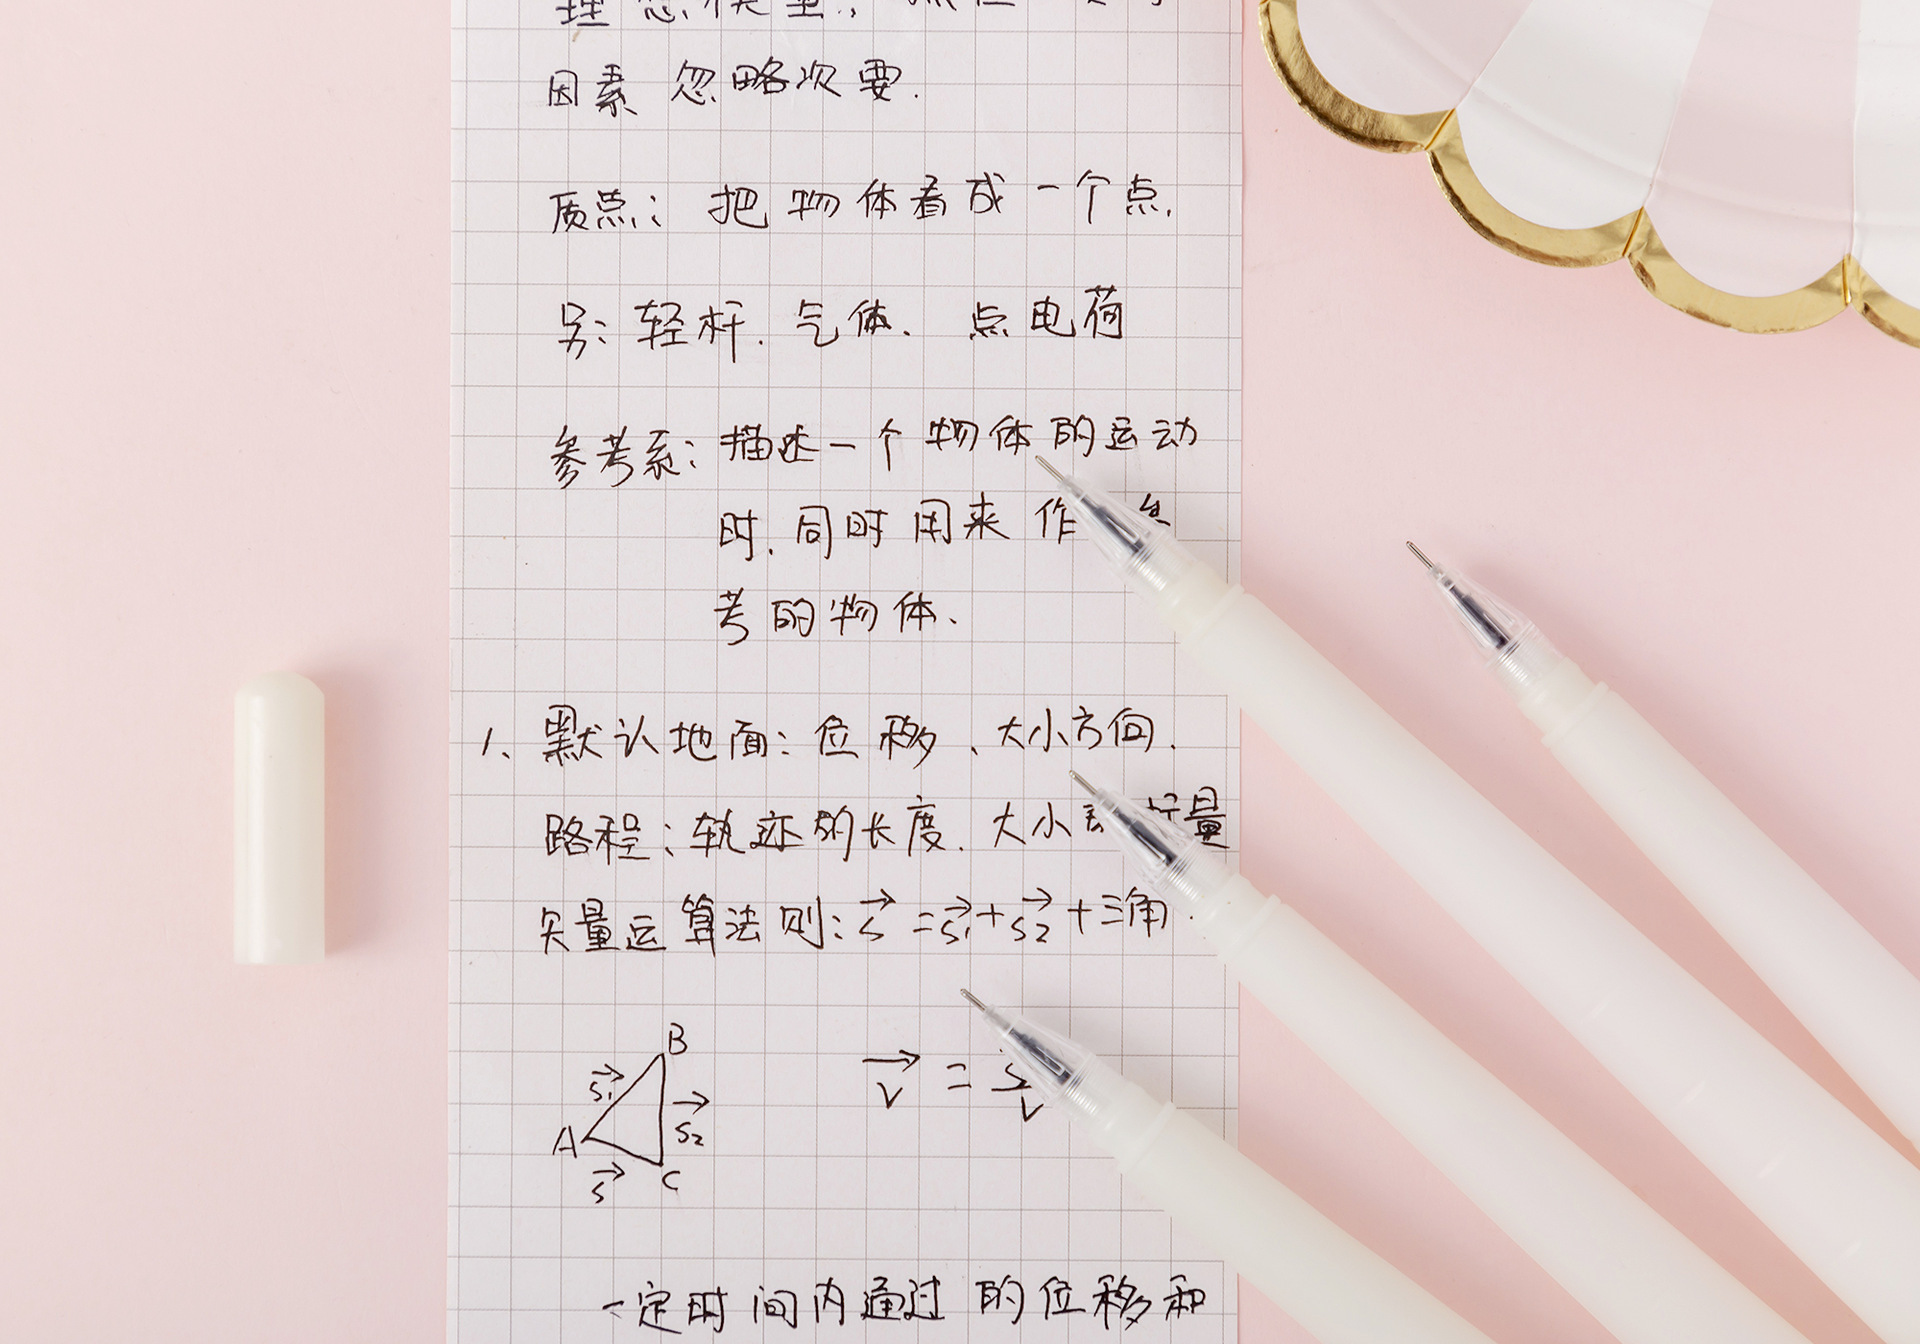 理想模型:
因素 忽略次要.
质点: 把物体看成一个点.
另: 轻杆. 气体. 点电荷
参考系: 描述一个物体的运动
时. 同时用来作
考的物体.
1. 默认地面: 位移、大小方向.
路程: 轨迹的长度. 大小 量
矢量运算法则: s⃗ = s⃗₁ + s⃗₂ + 三角.
B
s⃗₁
A
s⃗₂
s⃗
C
v⃗ =
v
一定时间内通过的位移和